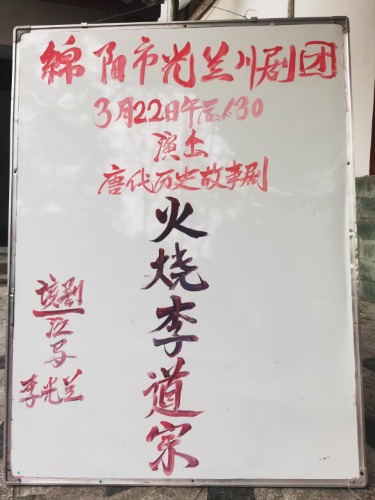 綿阳市光兰川剧团
3月22日午后1:30
演出
唐代历史故事剧
火烧李道宗
该剧
江导
李光兰